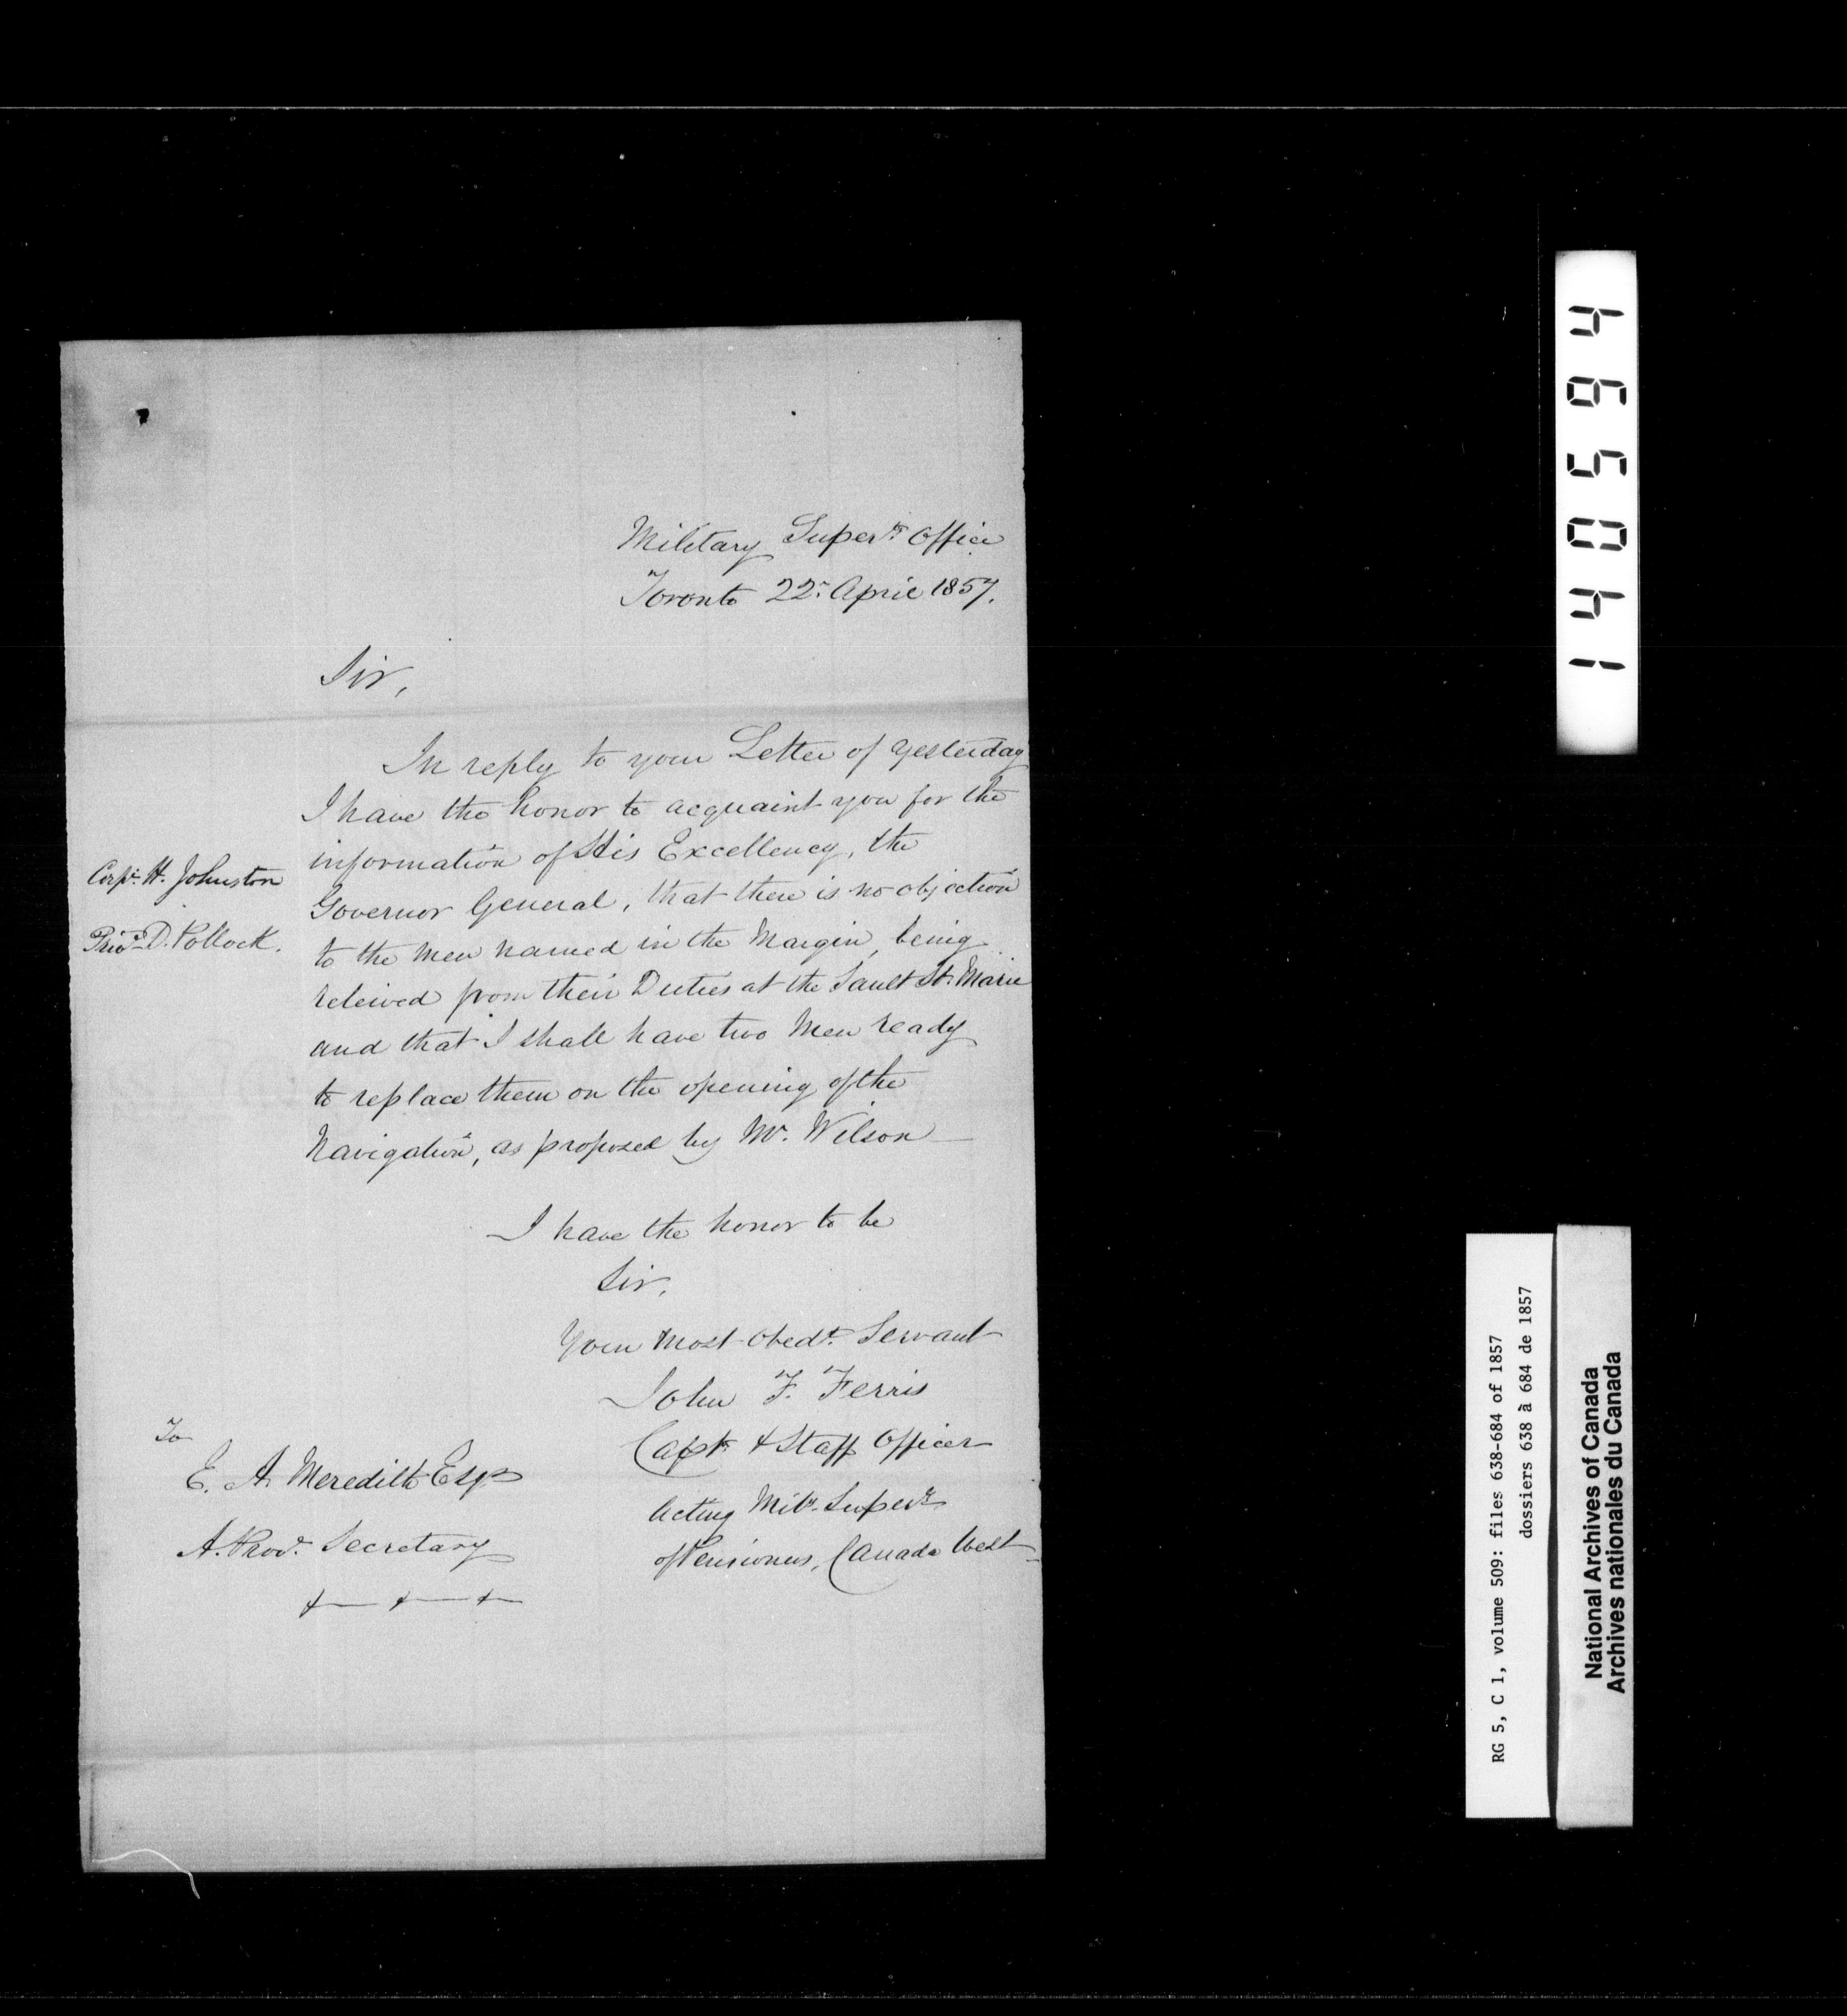 Military Super.ts Office
Toronto 22d April 1857.
Sir,
In reply to your Letter of Yesterday
I have the honor to acquaint you for the
information of His Excellency, the
Governor General, that there is no objection
to the Men named in the Margin, being
releived from their Duties at the Sault St. Marie
and that I shall have two Men ready
to replace them on the opening of the
Navigation, as proposed by Mr. Wilson —
Corpl. H. Johnston
Priv. D. Pollock.
I have the honor to be
Sir,
Your Most Obedt. Servant
John F. Ferris
Capt. & Staff Officer
Acting Mily. Super.t
of Pensioners, Canada West
To
E. A. Meredith Esqr
A. Prov. Secretary
140594
RG 5, C 1, volume 509: files 638-684 of 1857
dossiers 638 à 684 de 1857
National Archives of Canada
Archives nationales du Canada